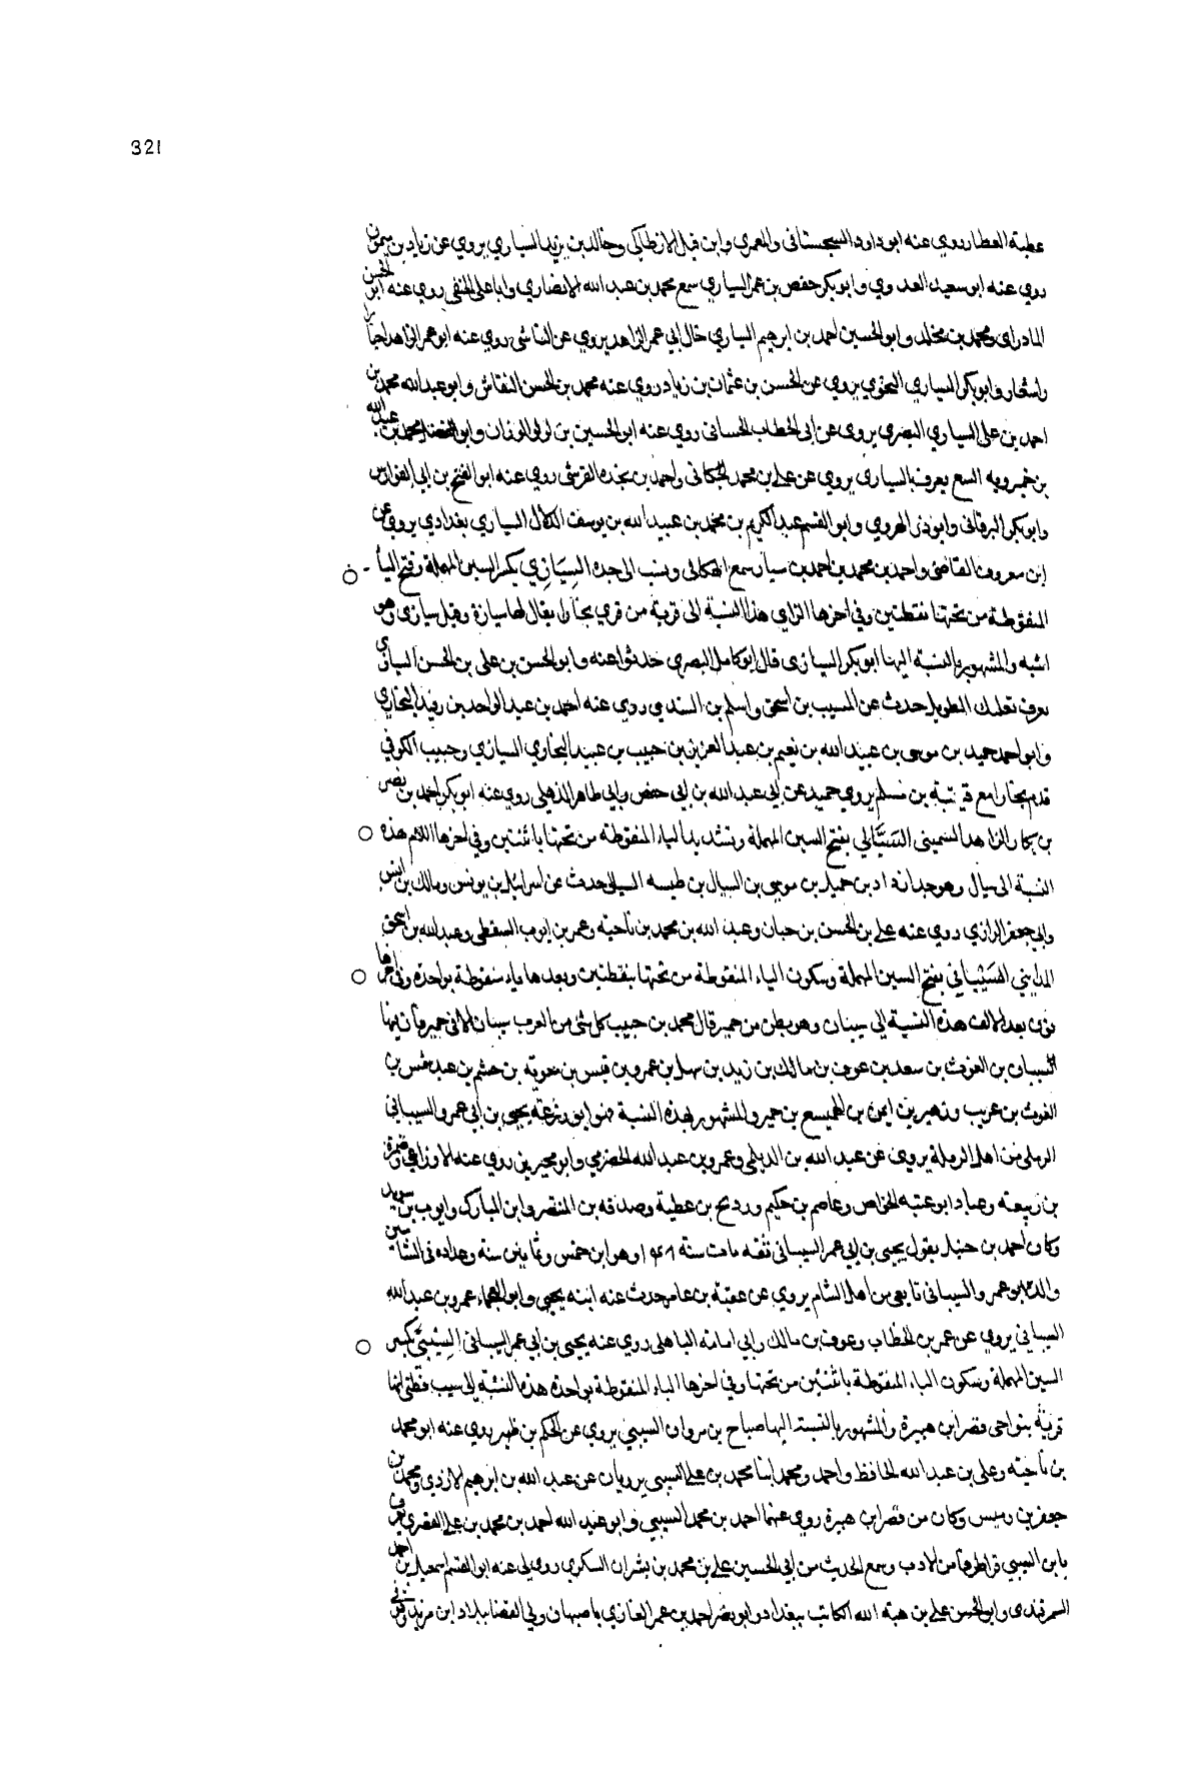 321
عطية العطار روي عنه ابو داود السجستاني والمعمري وابن فيل الانطاكي وخالد بن يزيد السياري يروي عن زياد بن ميمون
روي عنه ابو سعيد العدوي وابو بكر حفص بن عمر السياري سمع محمد بن عبد الله الانصاري وابا علي الحنفي روي عنه ابو الحسن
المادراي ومحمد بن مخلد وابو الحسين احمد بن ابرهيم السياري خال ابي عمر الزاهد يروي عن الناشي روي عنه ابو عمر الزاهد اخبارا
واشعار وابو بكر السياري النحوي يروي عن الحسن بن عثمان بن زياد روي عنه محمد بن الحسن النقاش وابو عبد الله محمد بن
احمد بن علي السياري البصري يروي عن ابي الخطاب الحساني روي عنه ابو الحسين بن لولو الوزان وابو محمد بن عبد الله
بن خميرويه السع يعرف بالسياري يروي عن علي بن محمد الجكاني واحمد بن نجده القرشي روي عنه ابو الفتح بن ابي الفوارس
وابو بكر البرقاني وابو ذر الهروي وابو القسم عبد الكريم بن محمد بن عبيد الله بن يوسف الدلال السياري بغدادي يروي عن
ابن معروف القاضي واحمد بن محمد بن احمد بن سيار سمع الهكاني وينسب الى جده السِيَازِي بكسر السين المهملة وفتح اليا
المنقوطة من تحتها بنقطتين وفي اخرها الزاي هذه النسبة الى قرية من قري بخارا يقال لها سيازة وقيل سيازي وهو
اشبه والمشهور بالنسبة اليها ابو بكر السيازي قال ابو كامل البصري حدثوا عنه وابو الحسن بن علي بن الحسن السيازي
يعرف بعلك الطويل حدث عن المسيب بن اسحق واسلم بن السندي روي عنه احمد بن عبد الواحد بن رفيد البخاري
وابو احمد حميد بن موسى بن عبيد الله بن نعيم بن عبد العزيز بن حبيب بن عبيد البخاري السيازي وحبيب الكوفي
قدم بخارا مع قتيبة بن مسلم يروي حميد عن ابي عبد الله بن ابي حفص وابي طاهر الذهلي روي عنه ابو بكر احمد بن نصر
بن بكار الزاهد السَيَّالي بفتح السين المهملة وتشديد الياء المنقوطة من تحتها باثنتين وفي اخرها اللام هذه
النسبة الى سيال وهو جد بن حميد بن موسي بن السيال بن طيسه السيالي حدث عن اسرائيل بن يونس ومالك بن انس
وابي جعفر الرازي روي عنه علي بن الحسن بن حبان وعبد الله بن محمد بن ناجية وعمر بن ايوب السقطي وعبد الله بن اسحق
المدايني السَيْبَاني بفتح السين المهملة وسكون الياء المنقوطة من تحتها بنقطتين وبعدها باء منقوطة بواحدة وفي اخرها
نون بعد الالف هذه النسبة الي سيبان وهو بطن من حمير قال محمد بن حبيب كل شي من العرب سيبان الا في حمير فان فيها
السيبان بن الغوث بن سعد بن عوف بن مالك بن زيد بن سهل بن عمرو بن قيس بن معوية بن جشم بن عبد شمس بن
الغوث بن عريب وزهير بن ايمن بن الهميسع بن حمير والمشهور بهذه النسبة هو ابو زرعة يحيى بن ابي عمرو السيباني
الرملي من اهل الرملة يروي عن عبد الله بن الديلمي وعمرو بن عبد الله الحضرمي وابو محيريز روي عنه الاوزاعي وضمرة
بن ربيعة وعباد ابو عتبه الخواص وعاصم بن حكيم ورديح بن عطية وصدقه بن المنتصر وابن المبارك وايوب بن سويد
وكان احمد بن حنبل يقول يحيى بن ابي عمر السيباني ثقه مات سنة وهو ابن خمس وثمانين سنة وعداده في الشاميين
والده ابو عمرو السيباني تابعي من اهل الشام يروي عن عقبة بن عامر حدث عنه ابنه يحيي وابو العجماء عمرو بن عبد الله
السيباني يروي عن عمر بن الخطاب وعوف بن مالك وابي امامة الباهلي روي عنه يحيى بن ابي عمر السيباني السِيْبِيّ بكسر
السين المهملة وسكون الياء المنقوطة باثنتين من تحتها وفي اخرها الباء المنقوطة بواحدة هذه النسبة الى سيب وظني انها
قرية بنواحي قصر ابن هبيرة والمشهور بالنسبة اليها صباح بن مروان السيبي يروي عن الحكم بن ظهير روي عنه ابو محمد
بن ناجية وعلي بن عبد الله الحافظ واحمد ومحمد ابنا محمد بن علي السيبي يرويان عن عبد الله بن ابرهيم الازدي ومحمد بن
جعفر بن رميس وكان من قصر ابن هبيرة روي عنهما احمد بن محمد السيبي وابو عبد الله احمد بن محمد بن علي القصري يعرف
بابن السيبي قرا طرفا من الادب وسمع الحديث من ابي الحسين علي بن محمد بن بشران السكري روي لي عنه ابو القسم اسمعيل بن احمد
السمرقندي وابو الحسن علي بن هبة الله الكاتب ببغداد وابو نصر احمد بن عمر الغازي باصبهان وولي القضا ببلاد ابن مزيد